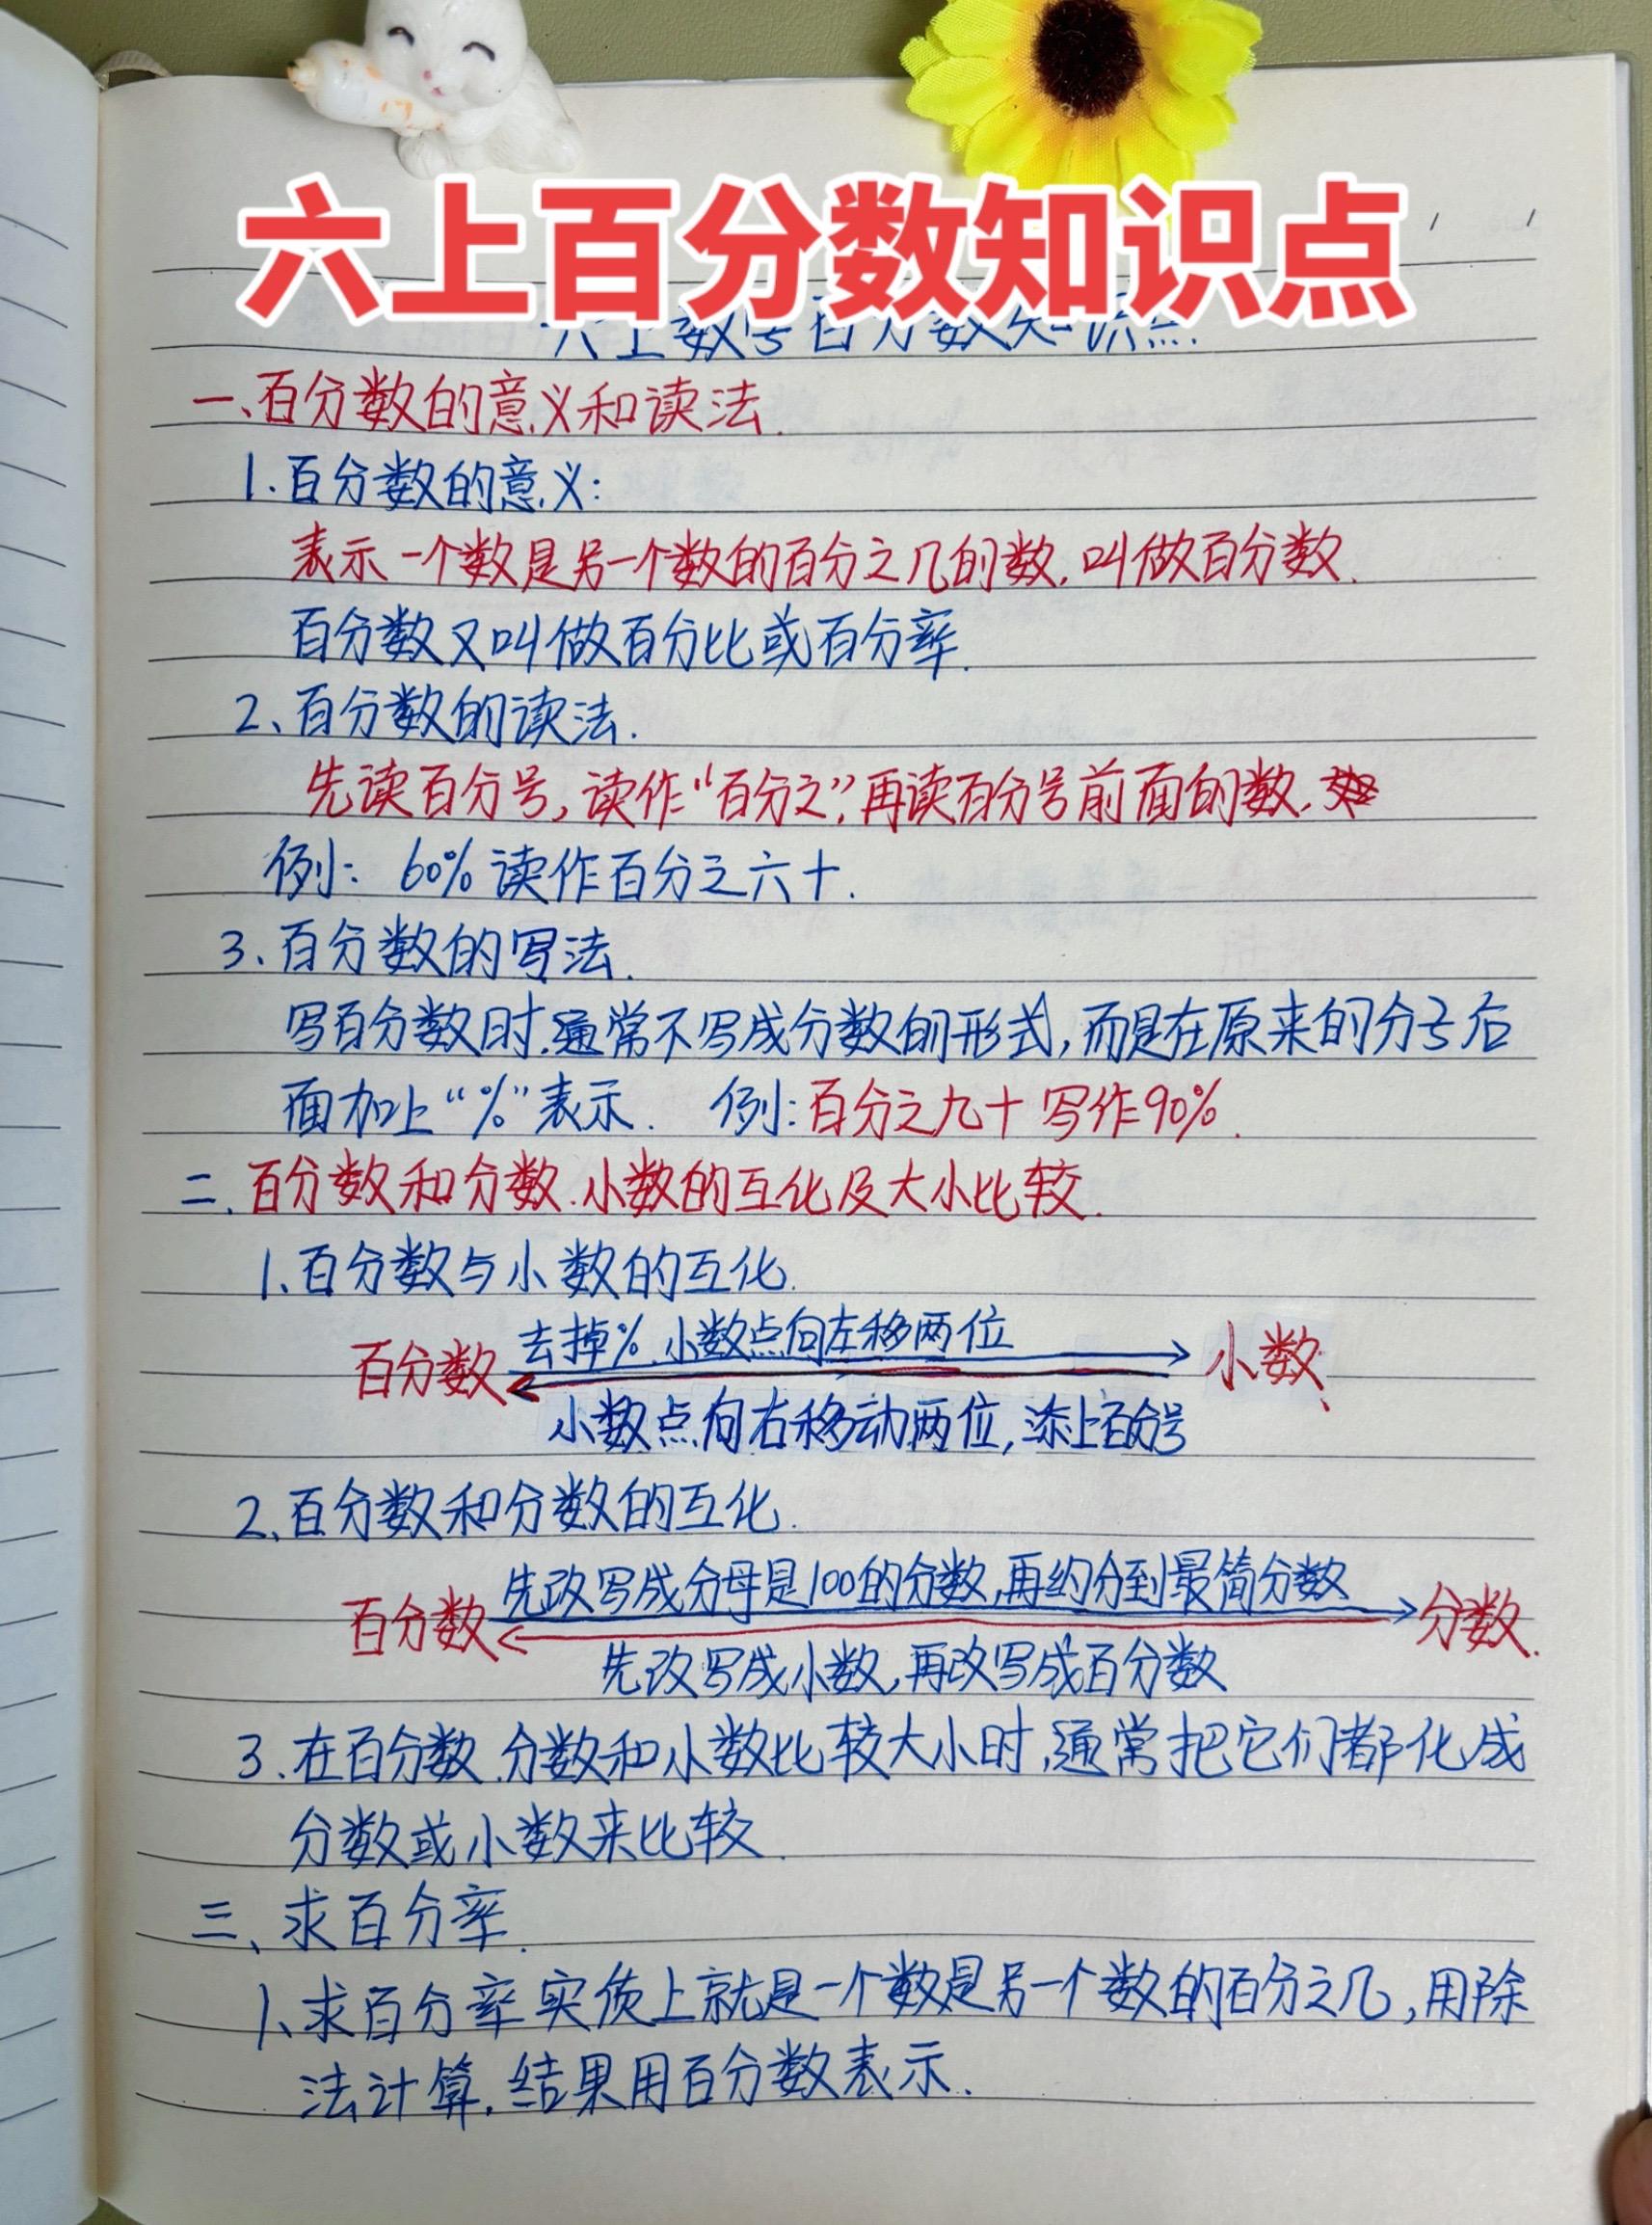 六上百分数知识点
六上数学百分数知识点.
一、百分数的意义和读法.
1.百分数的意义:
表示一个数是另一个数的百分之几的数,叫做百分数.
百分数又叫做百分比或百分率.
2、百分数的读法.
先读百分号,读作“百分之”,再读百分号前面的数.
例: 60%读作百分之六十.
3、百分数的写法.
写百分数时.通常不写成分数的形式,而是在原来的分子后
面加上“%”表示. 例:百分之九十写作90%.
二.百分数和分数.小数的互化及大小比较.
1、百分数与小数的互化.
去掉%.小数点向左移两位
百分数 小数
小数点向右移动两位,添上百分号
2、百分数和分数的互化.
先改写成分母是100的分数,再约分到最简分数
百分数 分数.
先改写成小数,再改写成百分数
3.在百分数.分数和小数比较大小时,通常把它们都化成
分数或小数来比较.
三、求百分率.
1、求百分率实质上就是一个数是另一个数的百分之几,用除
法计算.结果用百分数表示.